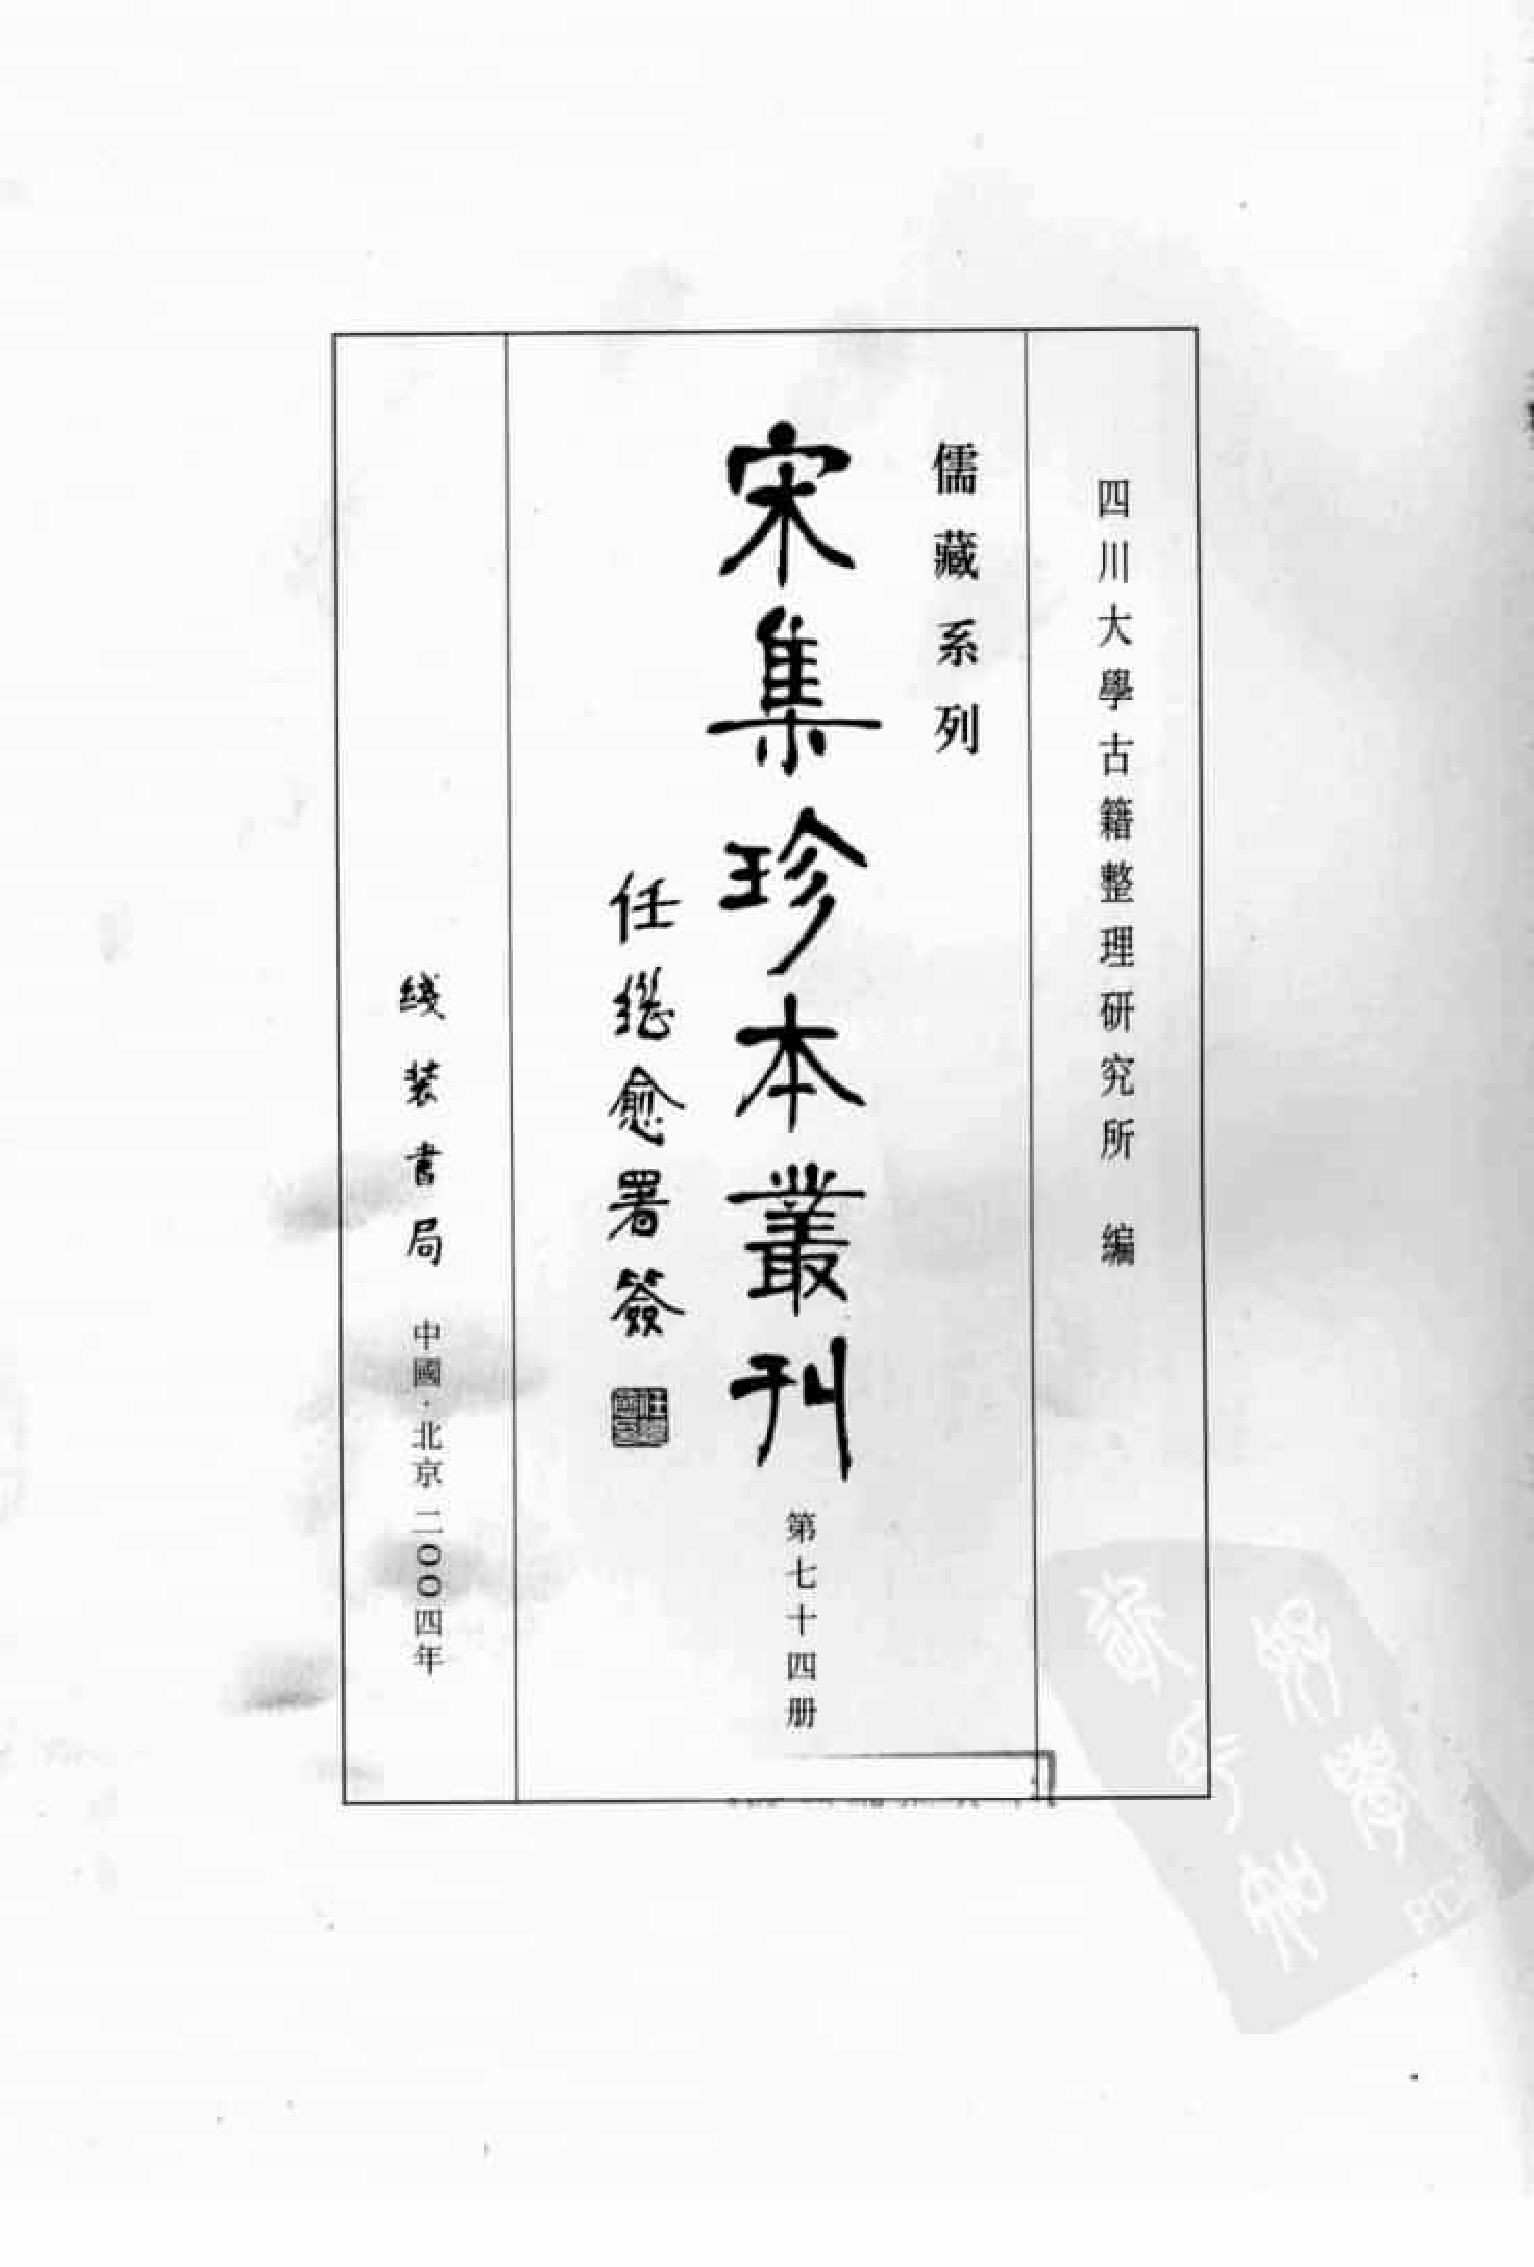 四川大學古籍整理研究所 编
儒藏系列
宋集珍本叢刊
第七十四册
任继愈署簽
线装書局
中國·北京二〇〇四年